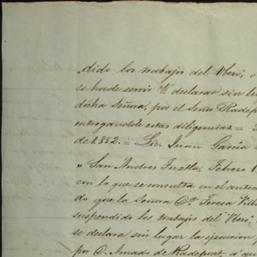 dido los trabajos del Ubero, o
se ha de servir V. declarar sin lu
dicha Señora, por el Señor Radepont
entregandole estas diligencias =
de 1852. = Lic. Juan Garcia
" San Andres Tuxtla, Febrero
con lo que se consulta en el ante
do que la Señora Da. Teresa Vill
suspendido los trabajos del Uber
se declara sin lugar la ejecucion
por D. Amado de Radepont, a qu